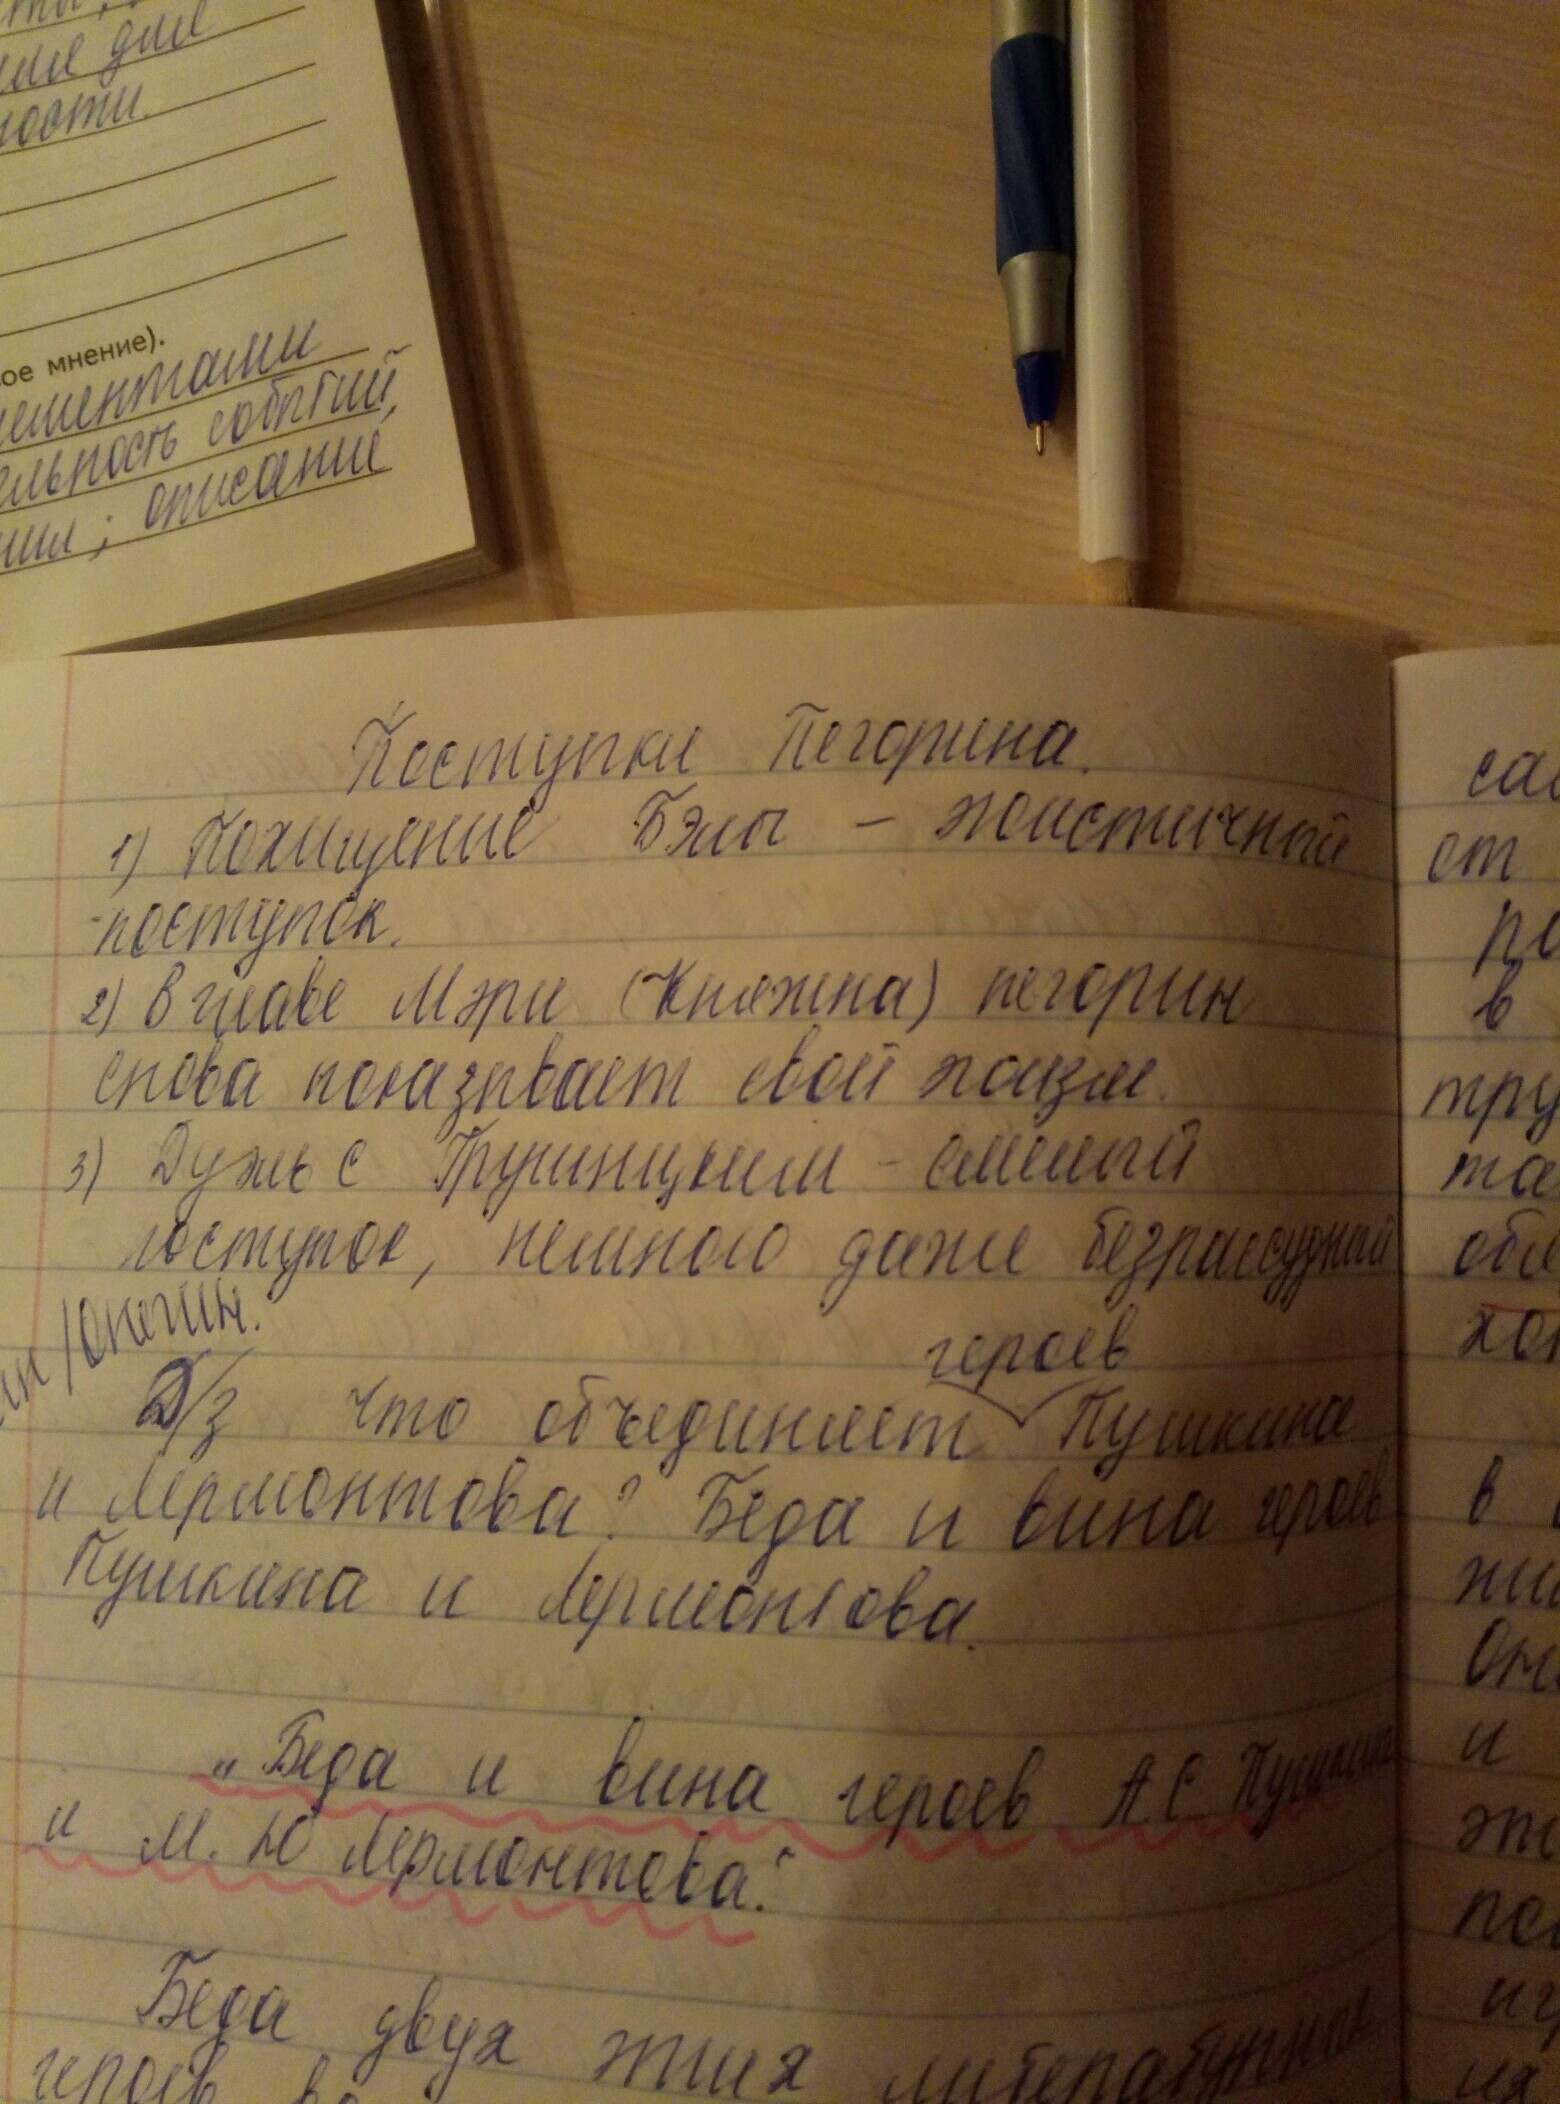 ности.
ое мнение).
ементами
ельность событий,
ния; описание
Поступки Пегорина.
1) Похищение Бэлы – эгоистичный
поступок.
2) В главе Мэри (Княжна) пегорин
снова показывает свой эгоизм.
3) Дуэль с Грушницким - смелый
поступок, немного даже безрассудный
ин/Онегин.
героев
Д/з Что объединяет Пушкина
и Лермонтова? Беда и вина героев
Пушкина и Лермонтова.
„Беда и вина героев А С Пушкина
и М. Ю Лермонтова."
Беда двух этих литературных
героев
са
ст
в
тру
та
обл
хот
в
жи
Он
и
эпо